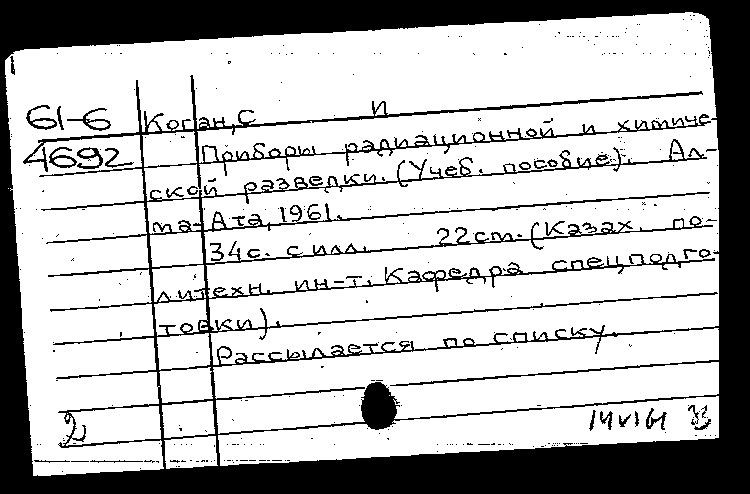 61-6 Коган, С И
4692 Приборы радиационной и химиче-
ской разведки. (Учеб. пособие). Ал-
ма-Ата, 1961.
34с. с илл. 22cm. (Казах. по-
литехн. ин-т. Кафедра спецподго-
товки).
Рассылается по списку.
2 14 VI 61